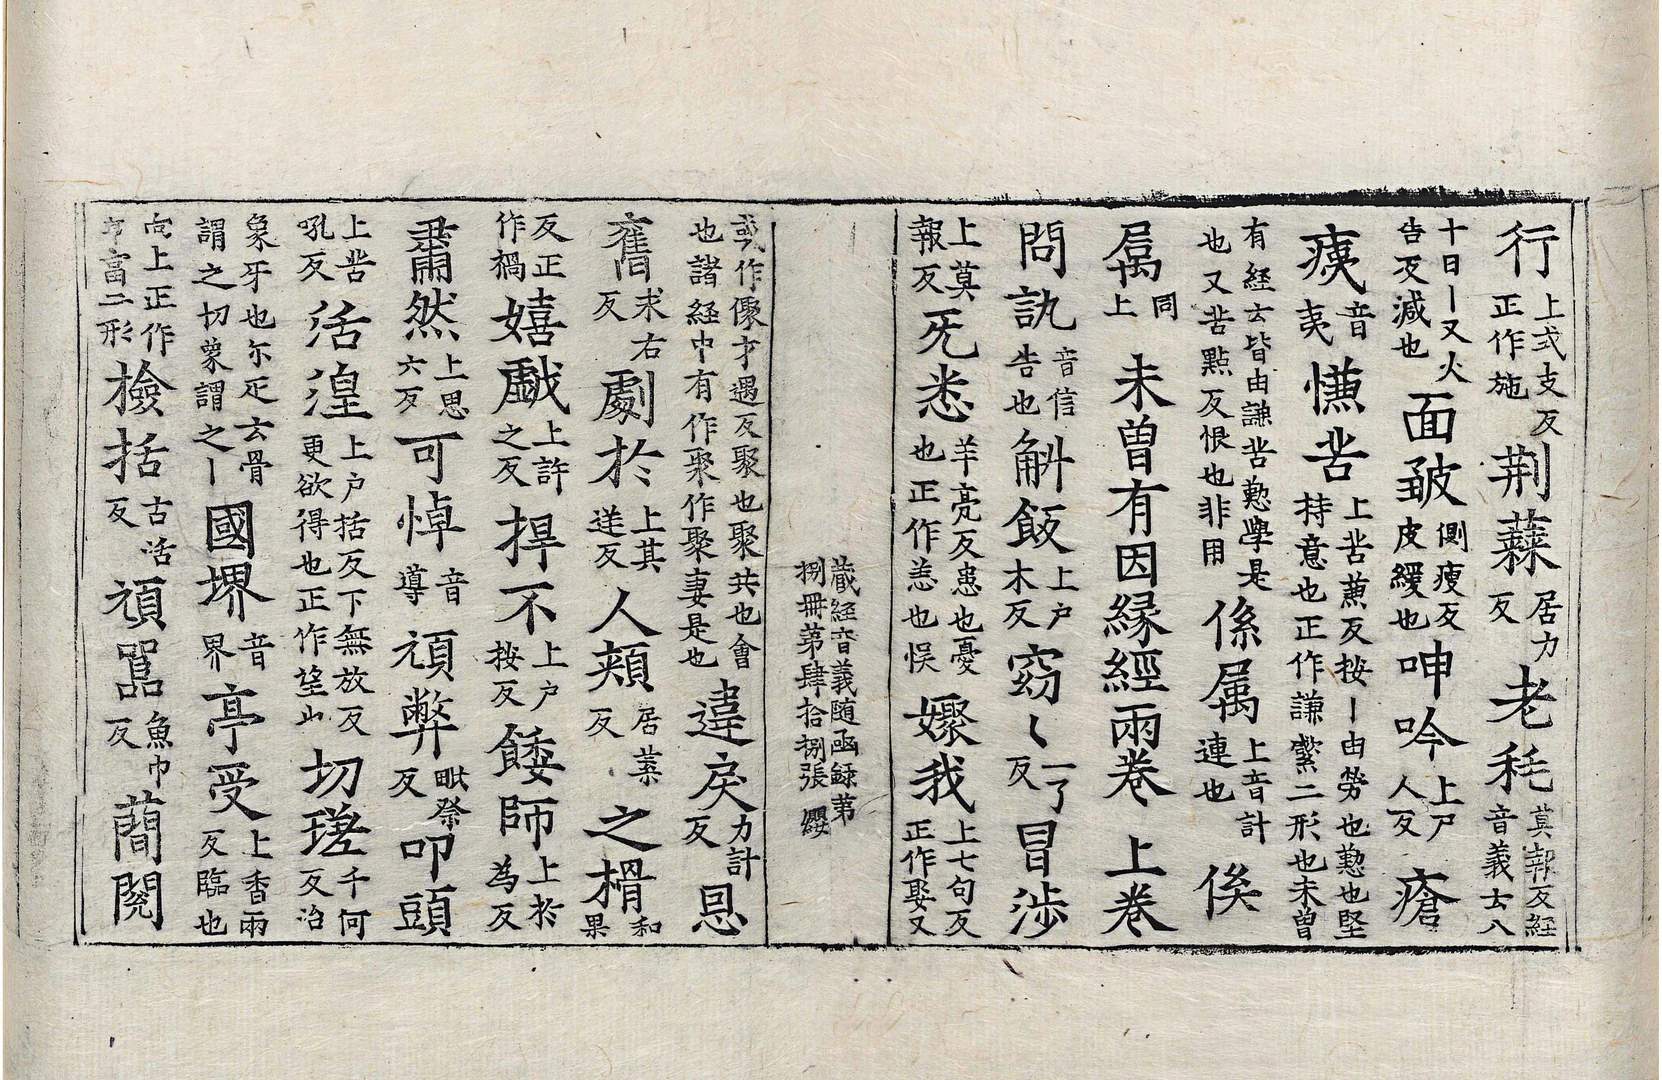 行上式支反正作施荆蕀居力反老耗莫報反経音義士八
十日丨又火告反減也面皱側瘦反皮緩也呻吟上尸人反瘡
痍音夷慊苦上苦蕪反按丨由勞也懃也堅持意也正作謙䌍二形也未曽
有経云皆由謙苦懃學是也又苦點反恨也非用係属上音計連也倏
属同上未曽有因縁經兩卷上卷
問訊音信告也斛飯上户木反窈〻一了反冒涉
上莫報反旡恙羊亮反患也憂也正作恙也悮嫏我上七句反正作娶又
蔵経音義随函録第捌冊第肆拾捌張 㒕
或作儏才遇反聚也聚共也會也諸経中有作聚作聚妻是也違戾力計反恩
舊求右反劇於上其逆反人頰居葉反之榾和果
反正作禍嬉戯上許之反捍不上户按反餧師上於為反
肅然上思六反可悼音導頑弊毗祭反叩頭
上苦吼反活湟上户括反下無放反更欲得也正作望也切瑳千何反治
象牙也尓疋云骨謂之切象謂之丨國堺音界亭受上香兩反臨也
向上正作亯富二形檢括古活反頑嚚魚巾反蕳閱